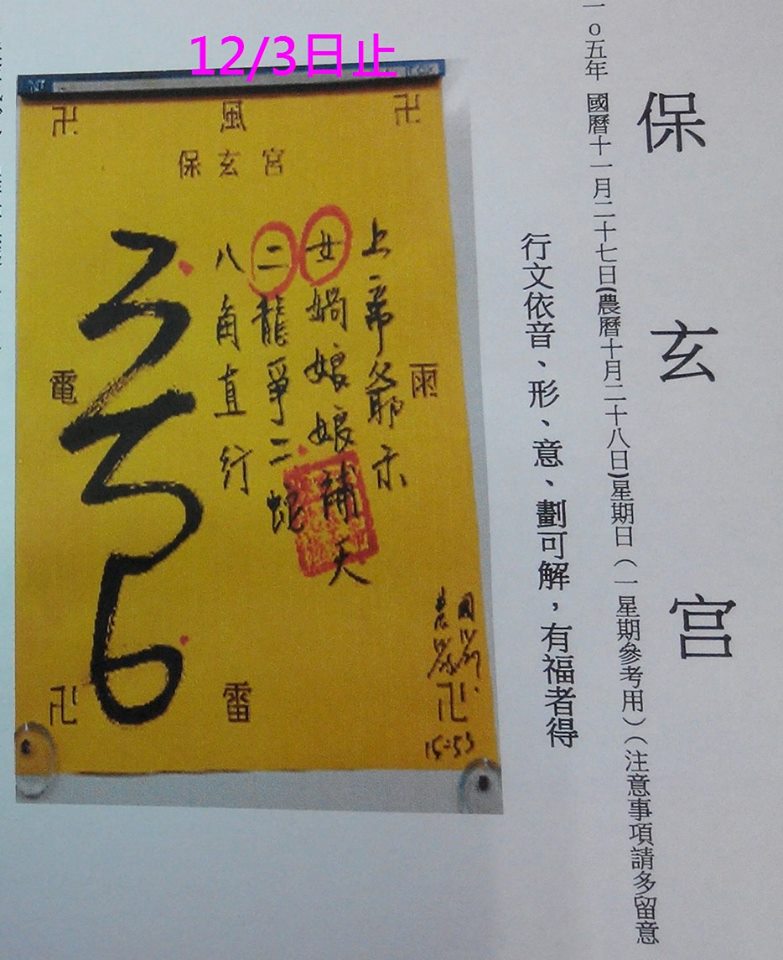 12/3日止
保玄宮
一0五年 國曆十一月二十七日(農曆十月二十八日)星期日（一星期參考用）（注意事項請多留意
行文依音、形、意、劃可解，有福者得
卍 風 卍
保玄宮
上帝爺示
女媧娘娘補天
二龍爭二蛇
八角直行
電
雨
卍 雷 卍
15:53